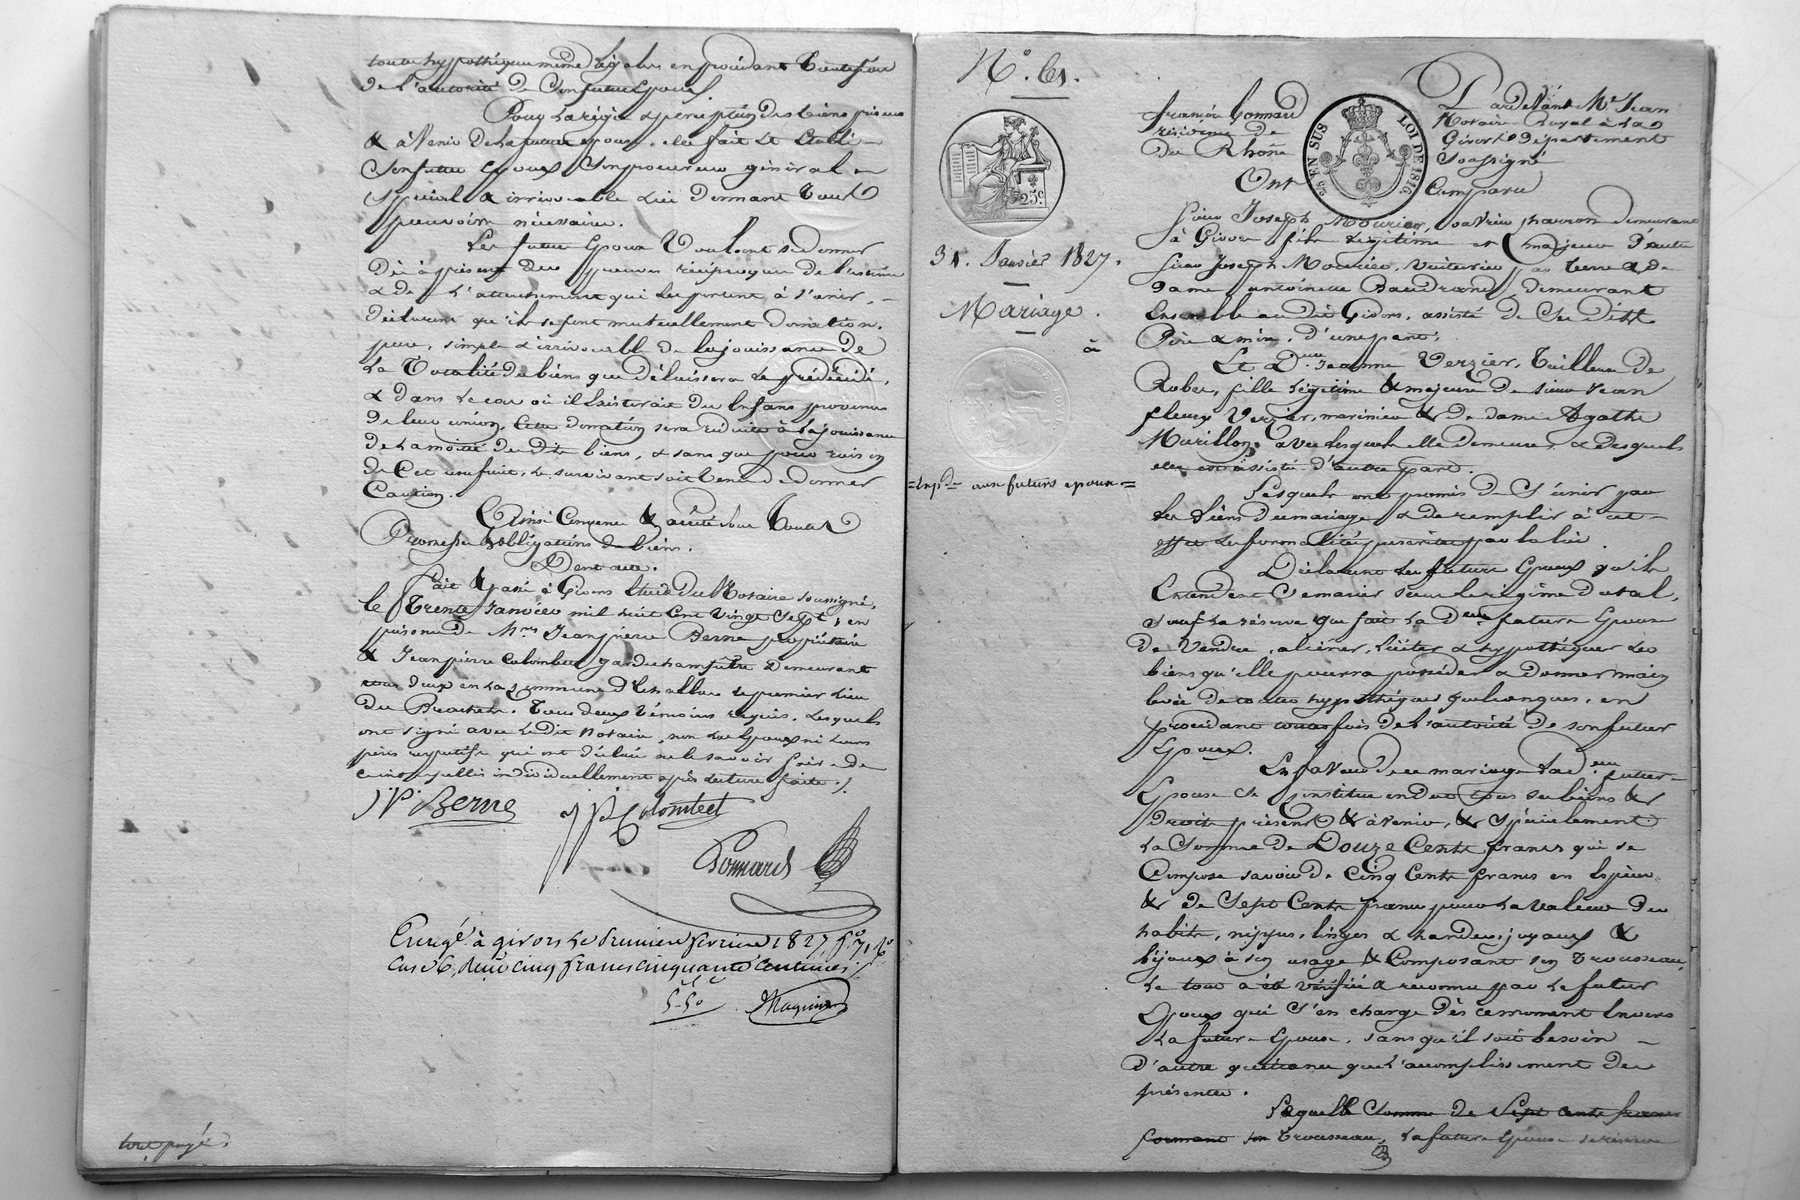 toute hypothèque même légale en procédant toutefois
de l'autorité de son futur Epoux.
Pour la régie & perception des biens présens
& à Venir de la future epouse, elle fait et Etabli
Son futur Epoux Son procureur général &
spécial & irrévocable lui donnant tout
pouvoir nécessaire.
Les futurs Epoux Voulant se donner
Dès à présent des preuves réciproques de l'estime
& de l'attachement qui les portent à s'unir,
déclarent qu'ils se font mutuellement donation
pure, simple & irrévocable de la jouissance de
la Totalité des biens que délaissera le prédécédé,
& dans le cas où il Existerait des Enfans provenus
de leur union, Cette donation sera réduite à la jouissance
de la moitié des dits biens, & sans que pour raison
de Cet usufruit, le survivant soit tenu de donner
Caution.
Ainsi Convenu & arrêté sous toutes
Promesses Obligations de biens.
Dont acte.
Fait & passé à Givors Etude du Notaire soussigné,
le Trente Janvier mil huit Cent Vingt Sept, en
présence de Mrs Jean pierre Berne propriétaire
& Jean pierre Colombet garde champêtre demeurant
tous deux en la Commune d'Echallas le premier lieu
du Tous deux témoins requis, lesquels
ont signé avec le dit Notaire, non les Epoux ni leurs
pères respectifs qui ont déclaré ne le savoir faire de
ce interpellés individuellement après lecture faite ./.
J. P. Berne
J P Colombet
Bonnard
Enregé à givors le premier février 1827, fo 71 Ro
Case 6, reçu cinq francs cinquante centimes
5-50
tout payé.
No. 61.
25c.
EN SUS LOI DE 1816.
31. Janvier 1827.
Mariage.
à
= Expdn aux futurs epoux =
Pardevant Me Jean
françois Bonnard Notaire Royal à la
résidence de Givors Département
du Rhône Soussigné
Ont Comparu
Sieur Joseph Mourier, ouvrier charron demeurant
à Givors fils légitime et majeur d'autre
sieur Joseph Mourier, Voiturier par terre & de
Dame antoinette Baudrand, demeurant
Ensemble au dit Givors, assisté de Ses dits
Père & mère, d'une part;
Et Dlle Jeanne Verzier, Tailleuse de
Robes, fille légitime & majeure de sieur Jean
fleury Verzier, marinier & de dame Agathe
Murillon, avec lesquels elle demeure & desquels
elle est assistée d'autre part.
Lesquels ont promis de S'unir par
les liens du mariage & de remplir à cet
effet les formalités prescrites par la loi.
Déclarent les futurs Epoux qu'ils
Entendent se marier sous le régime dotal,
sauf la réserve que fait la Dlle future Epouse
de vendre, aliéner, liciter & hypothéquer les
biens qu'elle pourra posséder & donner main
levée de toutes hypothèques quelconques, en
procédant toutefois de l'autorité de son futur
Epoux.
En faveur de ce mariage la Dlle future
Epouse Se Constitue en dot tous ses biens &
Droits présens & à venir, & Spécialement
la Somme de Douze Cents francs qui se
Compose savoir de Cinq Cents francs en Espèces
& de Sept Cents francs pour la Valeur des
habits, nippes, linges & hardes, joyaux &
bijoux à son usage & Composant son trousseau,
le tout a été vérifié & reconnu par le futur
Epoux qui S'en charge Dès ce moment Envers
la future Epouse, sans qu'il soit besoin
d'autre quittance que l'accomplissement des
présentes.
Laquelle Somme de Sept cents francs
formant son trousseau, la future Epouse se réserve